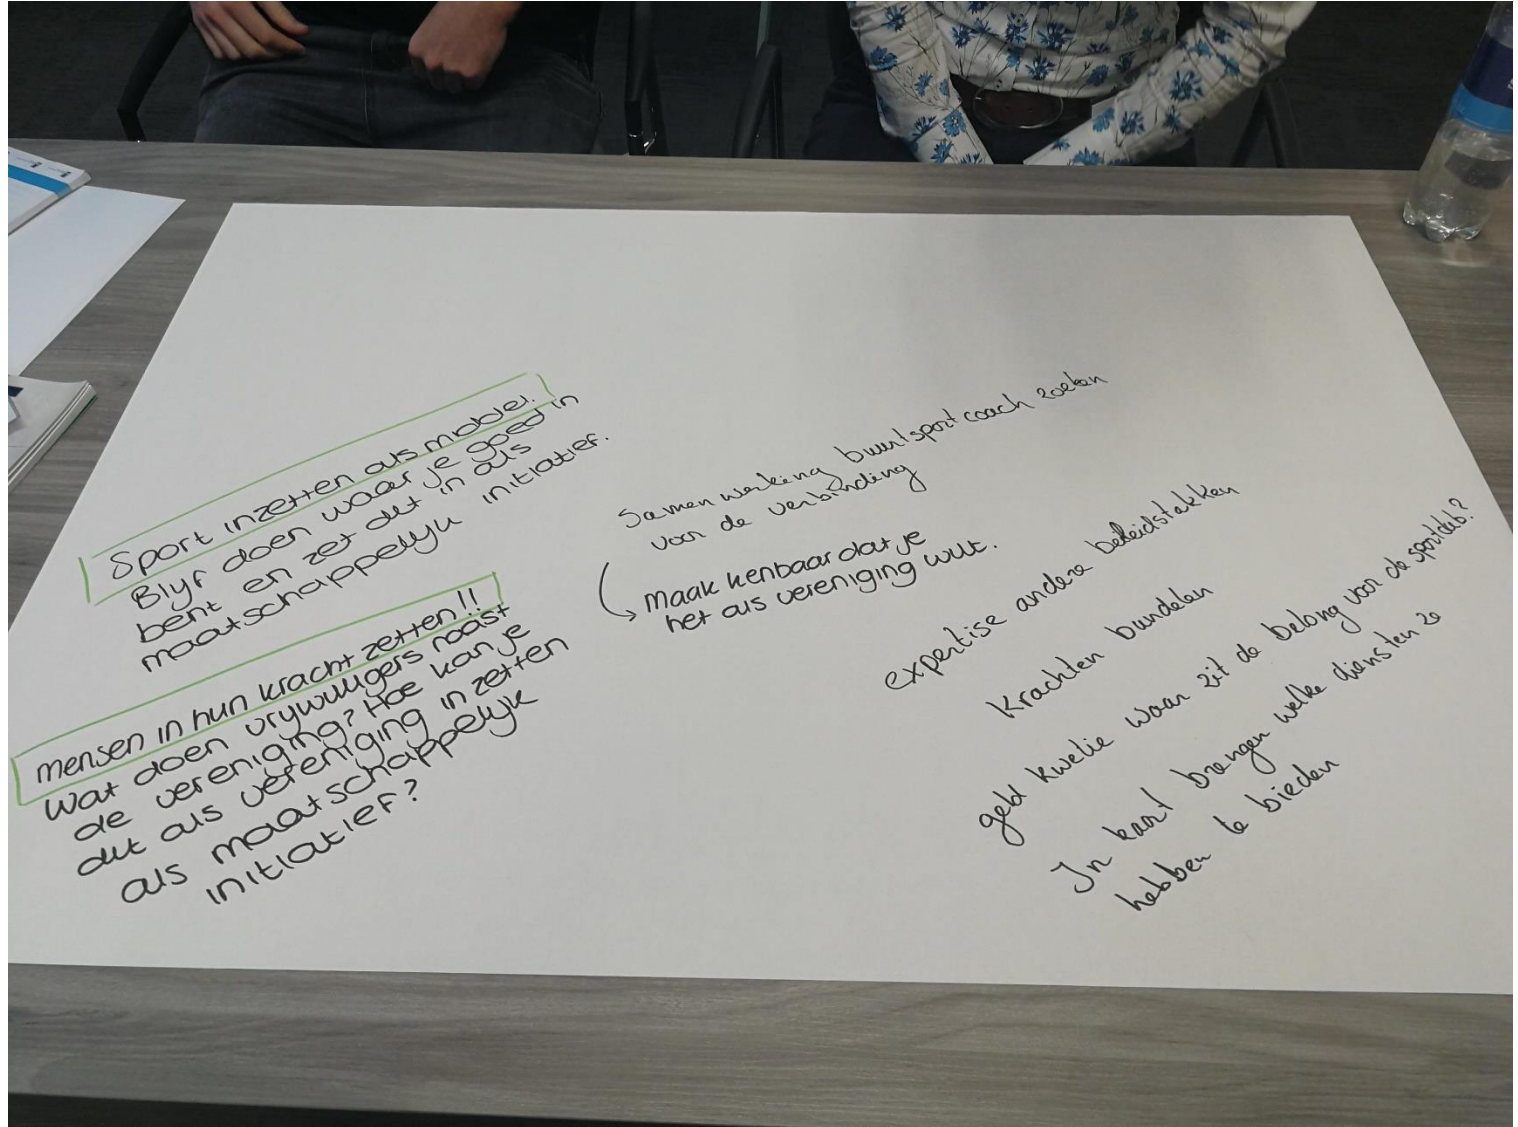 Sport inzetten als middel.
Blijf doen waar je goed in
bent en zet dit in als
maatschappelijk initiatief.
mensen in hun kracht zetten!!
Wat doen vrijwilligers naast
de vereniging? Hoe kan je
dit als vereniging inzetten
als maatschappelijk
initiatief?
Samenwerking buurtsportcoach zoeken
voor de verbinding
maak kenbaar dat je
het als vereniging wilt.
expertise andere beleidstakken
Krachten bundelen
geld kwetie waar zit de belang voor de sportclub?
In kaart brengen welke diensten ze
hebben te bieden